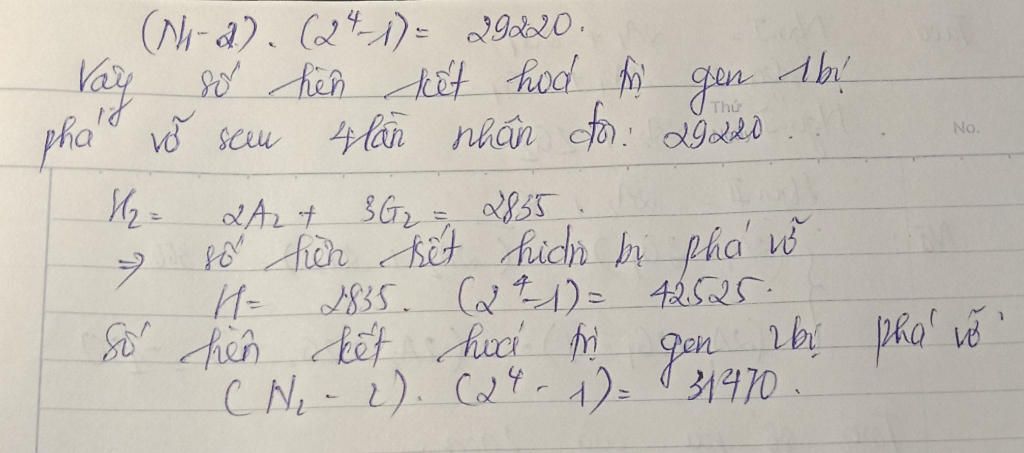 (N1-2). (2^4-1) = 29220.
Vậy số liên kết hoá trị gen 1 bị
phá vỡ sau 4 lần nhân đôi: 29220.
Thứ
No.
H2 = 2A2 + 3G2 = 2835.
⇒ số liên kết hidro bị phá vỡ
H = 2835. (2^4-1) = 42525.
Số liên kết hoá trị gen 2 bị phá vỡ
(N2 - 2). (2^4 - 1) = 31470.